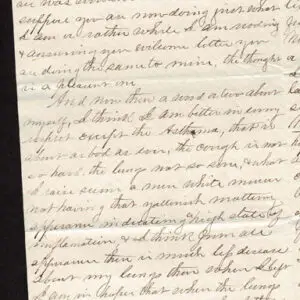 suppose you are now doing just what
I am or rather while I am reading
& answering your welcome letter you
are doing the same to mine, the thought
is a pleasant one
And now then a word about
myself, I think I am better in every
respect except the Asthma, that is
about as bad as ever, the cough is not
so hard, the lungs not so sore, & what
I raise seems a mere white mucus
not having that yellowish mattery
appearance indicating a high state of
inflamation & I think from all
appearance there is much less disease
about my lungs than when I left
I am in hopes that when the lungs